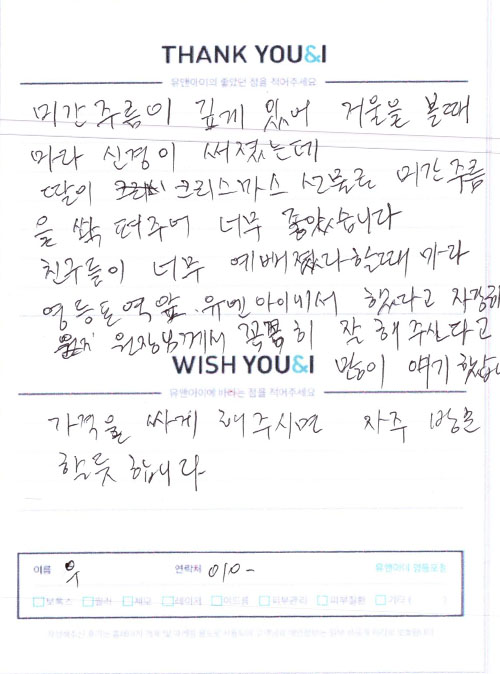 THANK YOU&I
유앤아이의 좋았던 점을 적어주세요
미간주름이 깊게 있어 거울을 볼때
마라 신경이 써졌는데
딸이 크리스마스 선물로 미간주름
을 쏵 펴주어 너무 좋았습니다
친구들이 너무 예뻐졌다할때 마라
영등포역앞 유엔아이에서 했다고 자랑하
원장님께서 꼼꼼히 잘 해주신다고
WISH YOU&I 많이 얘기했습니
유앤아이에 바라는 점을 적어주세요
가격을 싸게 해주시면 자주 방문
할듯 합니다
이름 우 연락처 010- 유앤아이 영등포점
보톡스 필러 제모 레이저 여드름 피부관리 피부질환 기타 ( )